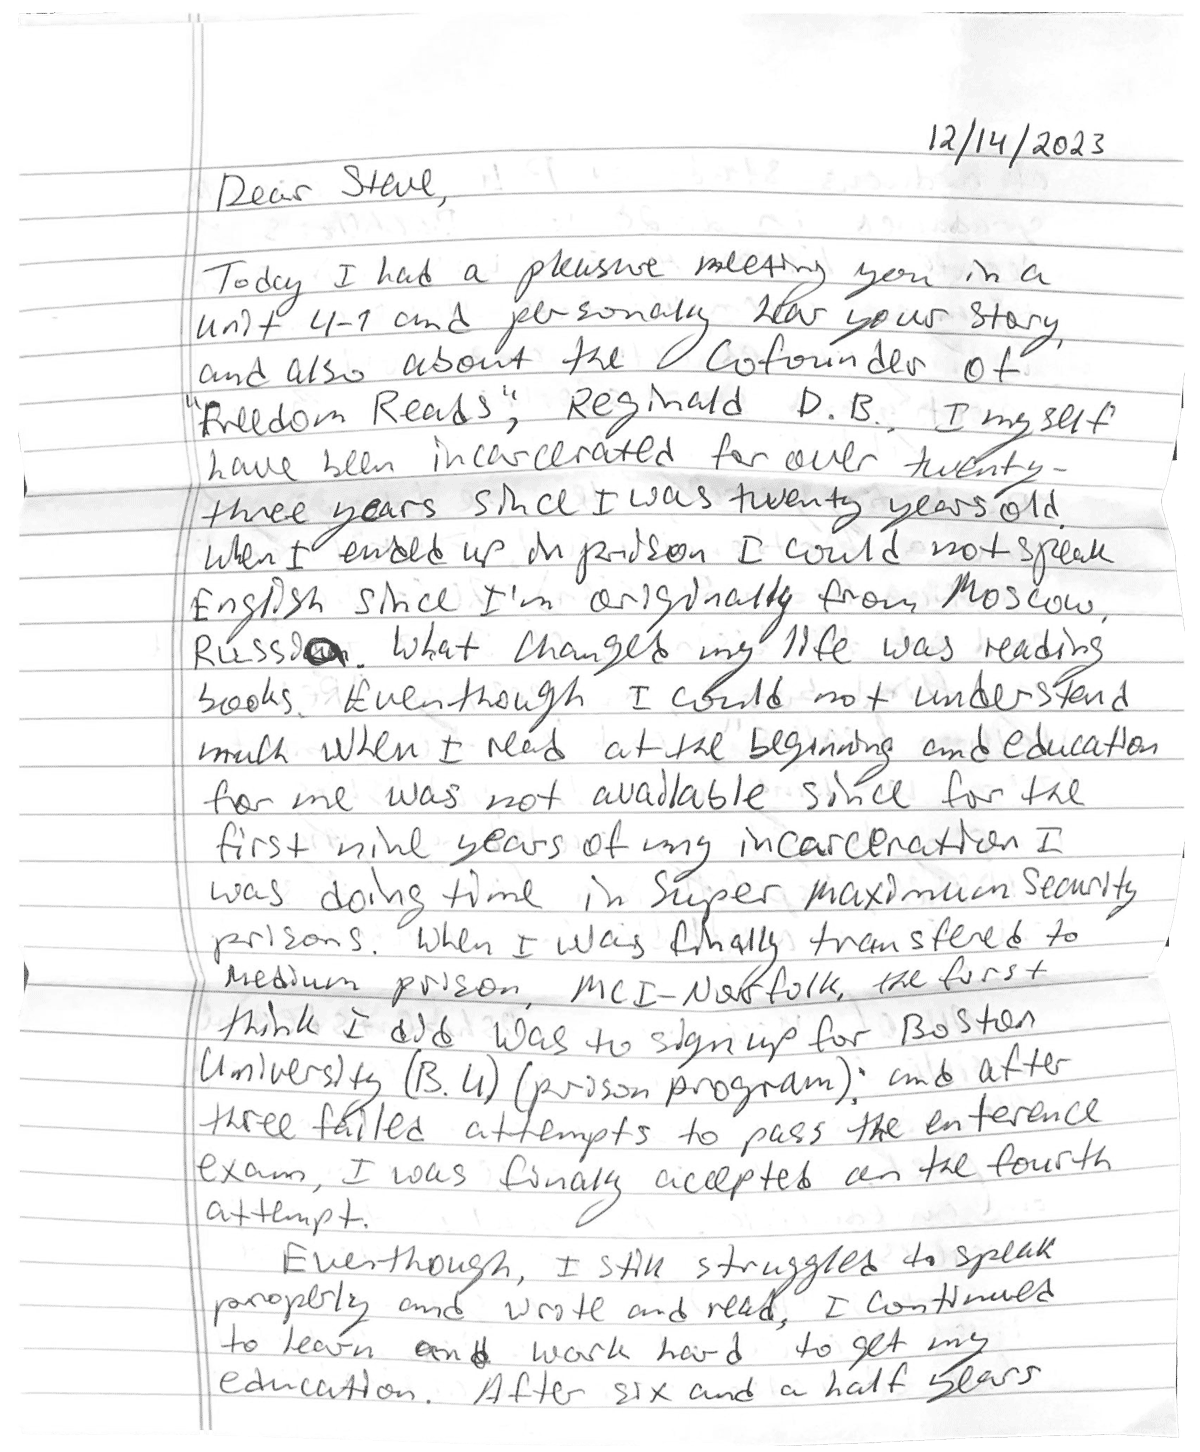 12/14/2023
Dear Steve,
Today I had a pleasure meeting you in a
unit 4-1 and personally hear your story,
and also about the Cofounder of
"Freedom Reads", Reginald D.B., I myself
have been incarcerated for over twenty-
three years since I was twenty years old.
When I ended up in prison I could not speak
English since I'm originally from Moscow,
Russia. What changed my life was reading
books. Eventhough I could not understand
much when I read at the beginning and education
for me was not available since for the
first nine years of my incarceration I
was doing time in Super Maximum Security
prisons. When I was finally transfered to
Medium prison, MCI-Norfolk, the first
think I did was to sign up for Boston
University (B.U) (prison program); and after
three failed attempts to pass the enterence
exam, I was finaly accepted on the fourth
attempt.
Eventhough, I still struggled to speak
properly and wrote and read, I continued
to learn and work hard to get my
education. After six and a half years